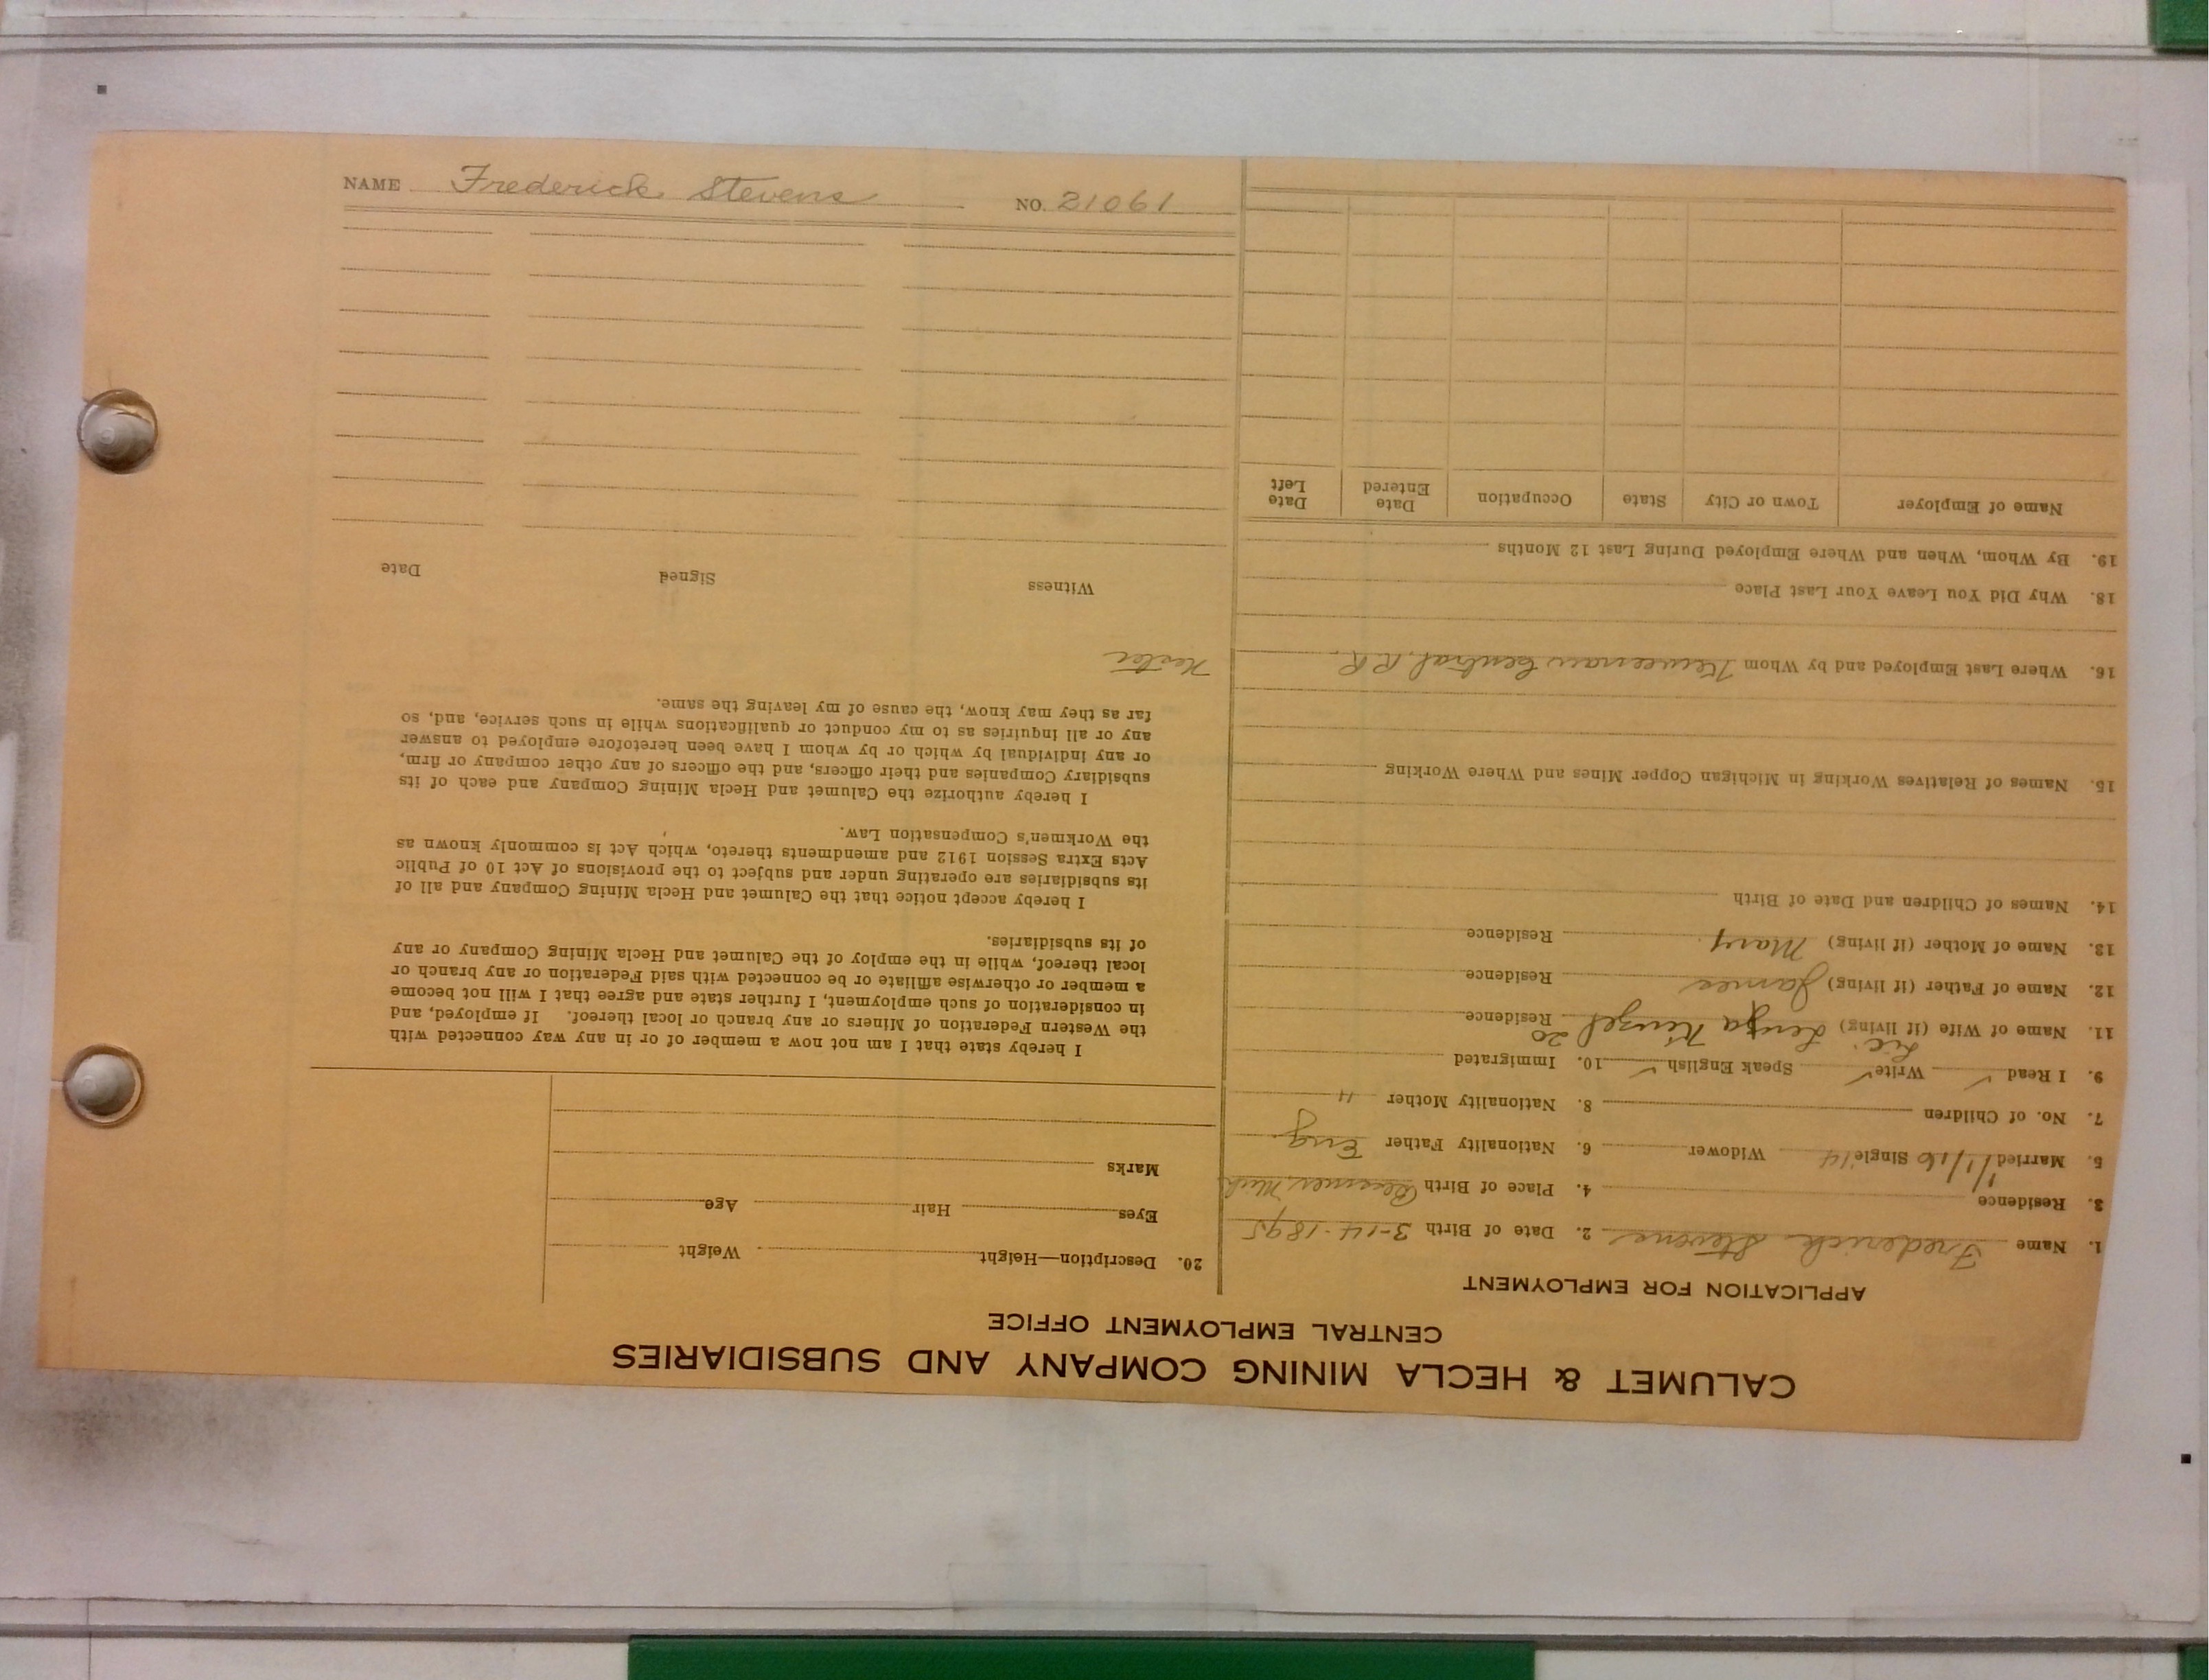 NAME Frederick Stevens NO. 21061
CALUMET & HECLA MINING COMPANY AND SUBSIDIARIES
CENTRAL EMPLOYMENT OFFICE
APPLICATION FOR EMPLOYMENT
1. Name Frederick Stevens 2. Date of Birth 3-14-1895
3. Residence 4. Place of Birth Mich
5. Married 1/1/16 Single Widower 6. Nationality Father Eng.
7. No. of Children 8. Nationality Mother "
9. I Read ✓ Write ✓ Speak English ✓ 10. Immigrated
11. Name of Wife (if living) Residence
12. Name of Father (if living) James Residence
13. Name of Mother (if living) Mary Residence
14. Names of Children and Date of Birth
15. Names of Relatives Working in Michigan Copper Mines and Where Working
16. Where Last Employed and by Whom Keweenaw Central R.R.
18. Why Did You Leave Your Last Place
19. By Whom, When and Where Employed During Last 12 Months
Name of Employer Town or City State Occupation Date Entered Date Left
20. Description—Height Weight
Eyes Hair Age
Marks
I hereby state that I am not now a member of or in any way connected with
the Western Federation of Miners or any branch or local thereof. If employed, and
in consideration of such employment, I further state and agree that I will not become
a member or otherwise affiliate or be connected with said Federation or any branch or
local thereof, while in the employ of the Calumet and Hecla Mining Company or any
of its subsidiaries.
I hereby accept notice that the Calumet and Hecla Mining Company and all of
its subsidiaries are operating under and subject to the provisions of Act 10 of Public
Acts Extra Session 1912 and amendments thereto, which Act is commonly known as
the Workmen's Compensation Law.
I hereby authorize the Calumet and Hecla Mining Company and each of its
subsidiary Companies and their officers, and the officers of any other company or firm,
or any individual by which or by whom I have been heretofore employed to answer
any or all inquiries as to my conduct or qualifications while in such service, and, so
far as they may know, the cause of my leaving the same.
Witness Signed Date